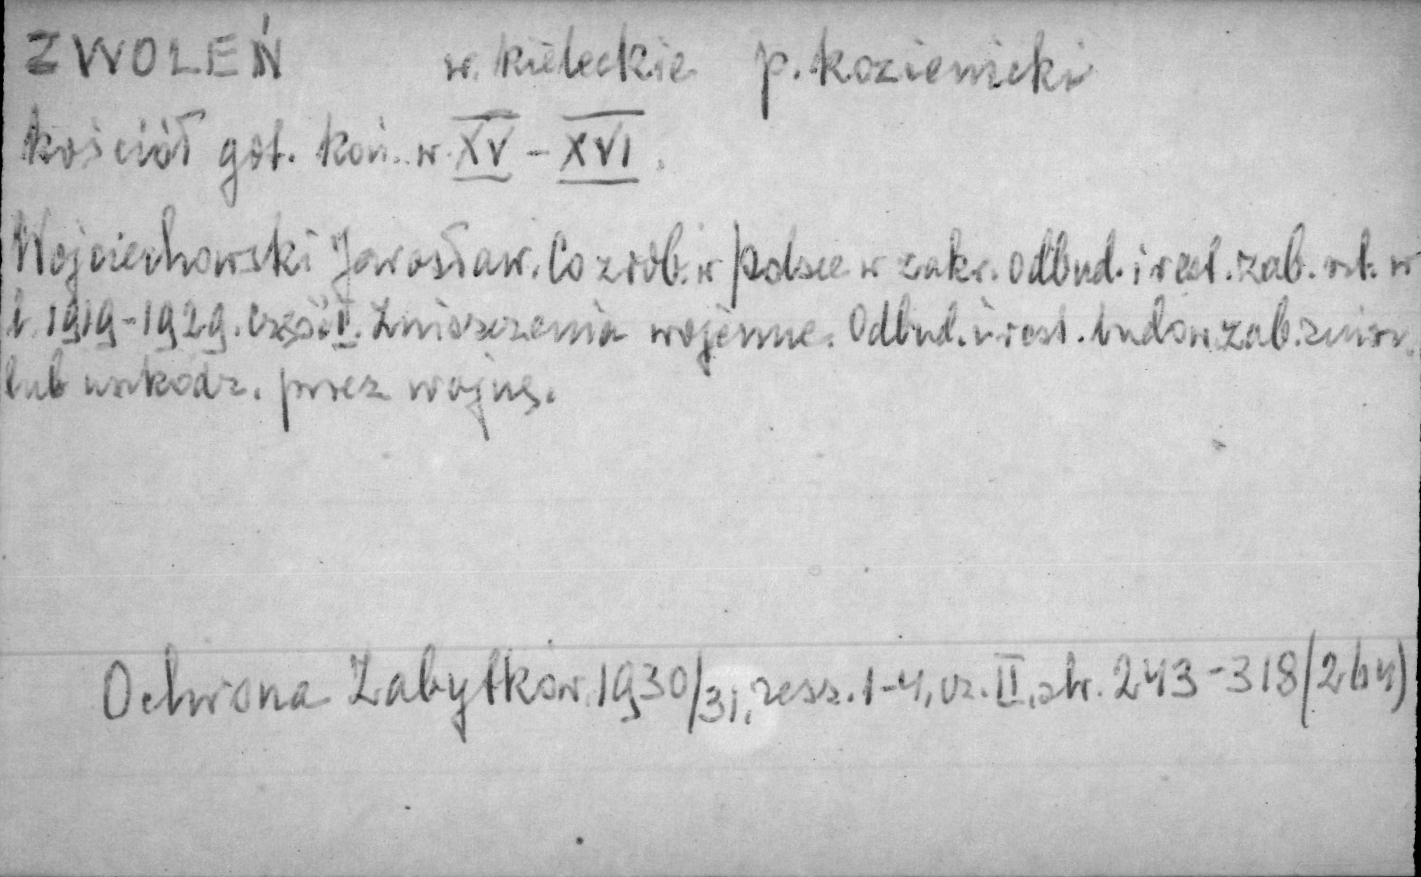 ZWOLEŃ w. kieleckie p. kozienicki
kościół got. koń. w. XV – XVI.
Wojciechowski Jarosław. Co zrob. w Polsce w zakr. odbud. i rest. zab. w
l. 1919-1929. Część II. Zniszczenia wojenne. Odbud. i rest. budow. zab. zniszcz.
lub uszkodz. przez wojnę.
Ochrona Zabytków, 1930/31, zesz. 1-4, cz. II, str. 243-318 (264)